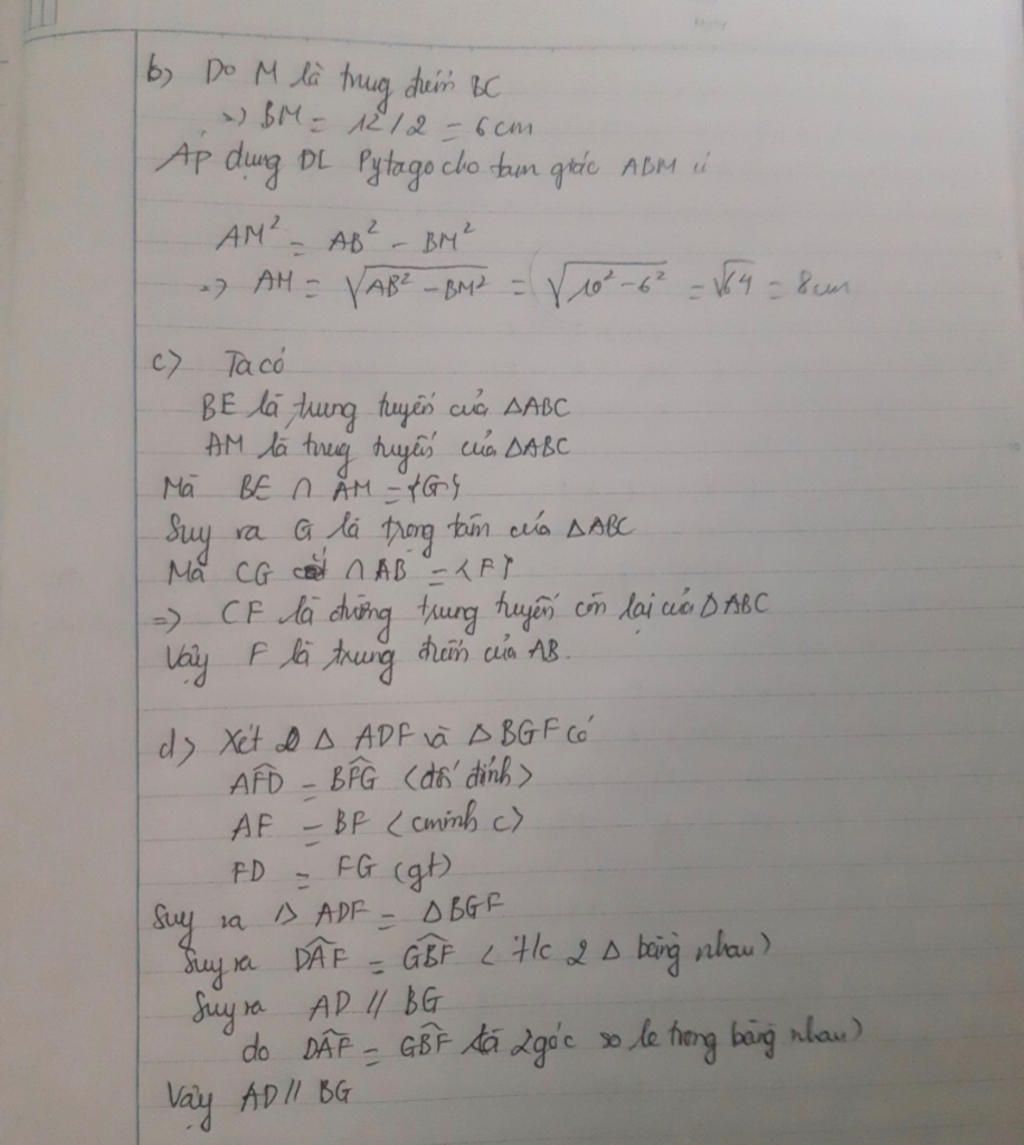 b) Do M là trung điểm BC
=> BM = 12/2 = 6 cm
Áp dụng ĐL Pytago cho tam giác ABM
AM² = AB² - BM²
=> AM = √(AB² - BM²) = √(10² - 6²) = √64 = 8cm
c) Ta có
BE là trung tuyến của ΔABC
AM là trung tuyến của ΔABC
Mà BE ∩ AM = {G}
Suy ra G là trọng tâm của ΔABC
Mà CG ∩ AB = {F}
=> CF là đường trung tuyến còn lại của ΔABC
Vậy F là trung điểm của AB.
d) Xét Δ ADF và Δ BGF có
AF̂D = BF̂G (đối đỉnh)
AF = BF (cminh c)
FD = FG (gt)
Suy ra Δ ADF = ΔBGF
Suy ra DÂF = GB̂F (t/c 2 Δ bằng nhau)
Suy ra AD // BG
do DÂF = GB̂F là 2 góc so le trong bằng nhau)
Vậy AD // BG